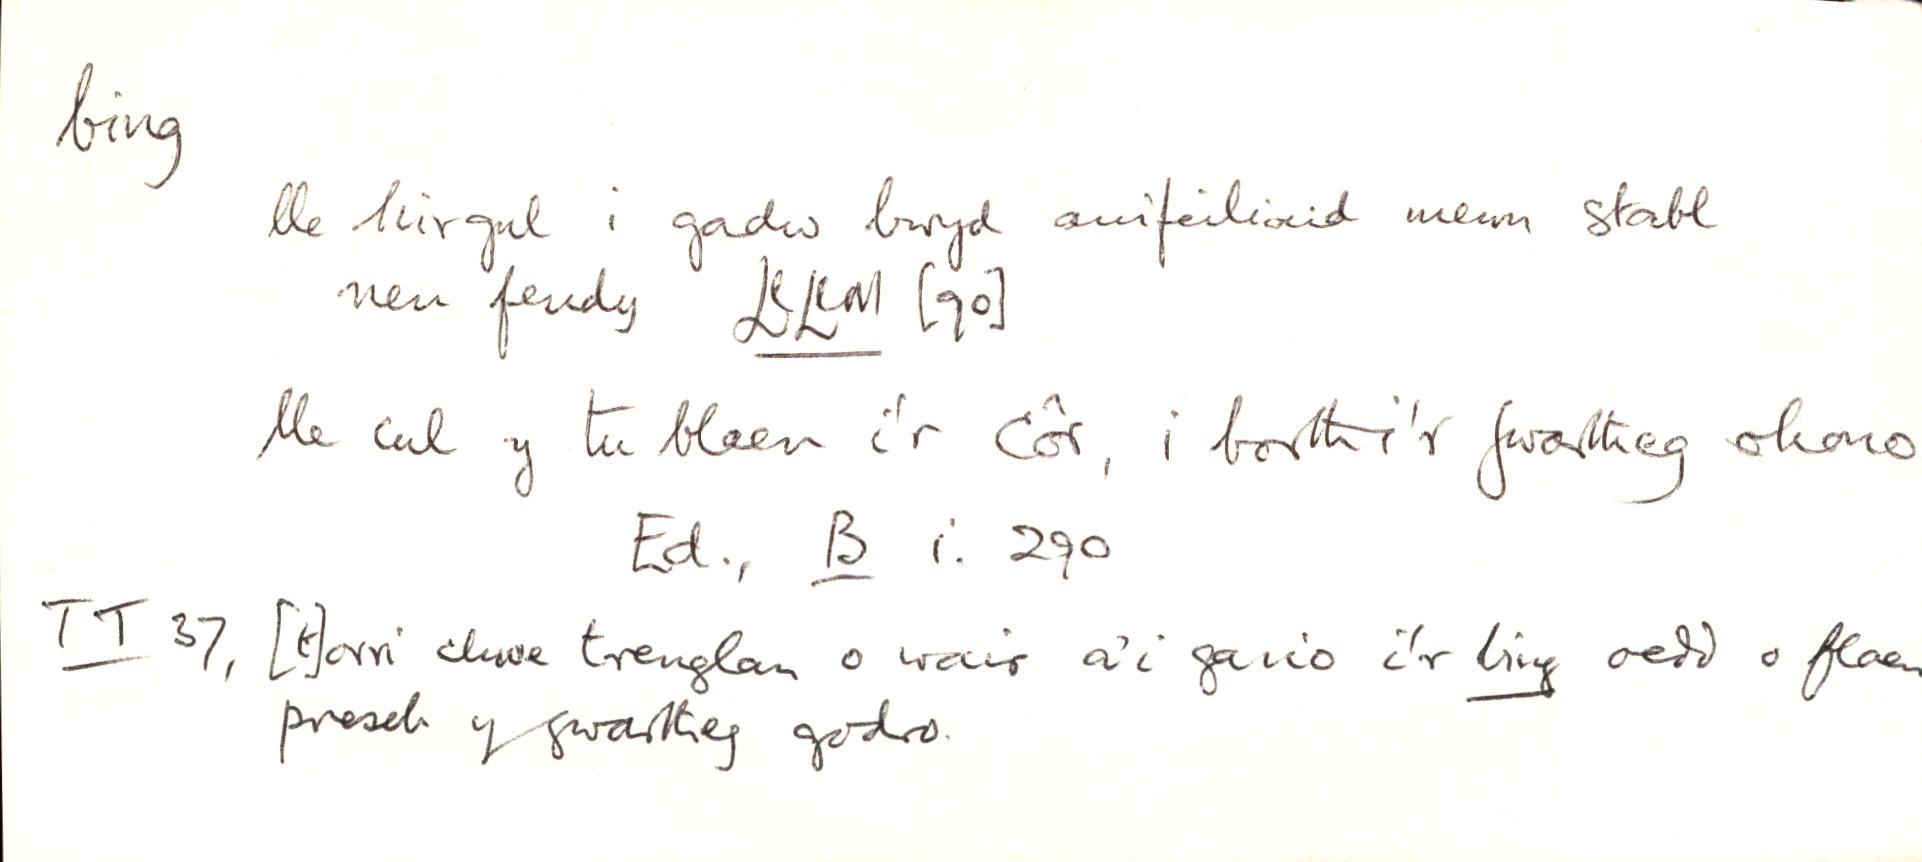 bing
lle hirgul i gadw bwyd anifeiliaid mewn stabl
neu feudy LLLlM [90]
lle cul y tu blaen i'r Côr, i borthi'r gwartheg ohono
Ed., B i. 290
TT 37, [t]orri chwe trenglan o wair a'i gario i'r bing oedd o flaen
preseb y gwartheg godro.